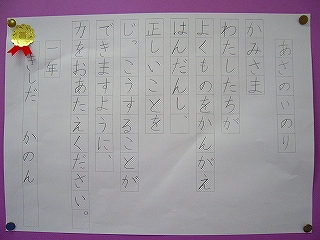 あさのいのり
かみさま
わたしたちが
よくものをかんがえ
はんだんし、
正しいことを
じっこうすることが
できますように、
力をおあたえください。
一年
きしだ かのん